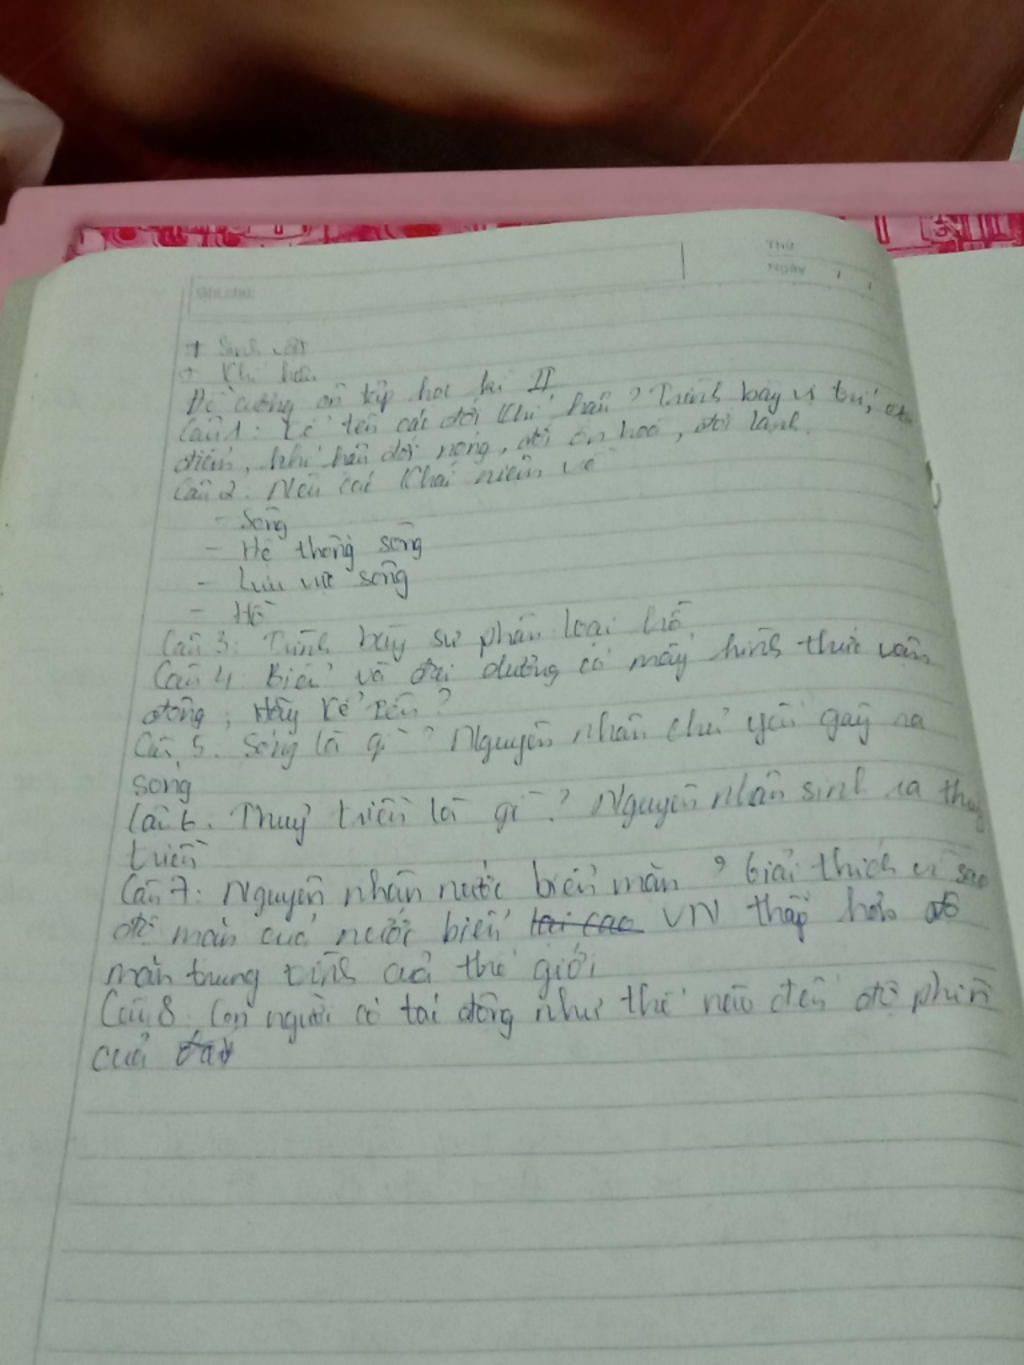 Thứ
Ngày
Ghi chú:
+ Sinh vật
+ Khí hậu
Đề cương ôn tập học kì II
Câu 1: Kể tên các đới khí hậu? Trình bày vị trí, đặc
điểm, khí hậu đới nóng, đới ôn hoà, đới lạnh.
Câu 2. Nêu các khái niệm về
- Sông
- Hệ thống sông
- Lưu vực sông
- Hồ
Câu 3: Trình bày sự phân loại hồ
Câu 4 Biển và đại dương có mấy hình thức vận
động; Hãy kể tên?
Câu 5. Sóng là gì? Nguyên nhân chủ yếu gây ra
sóng
Câu 6. Thuỷ triều là gì? Nguyên nhân sinh ra thuỷ
triều
Câu 7: Nguyên nhân nước biển mặn? Giải thích vì sao
độ mặn của nước biển lại cao VN thấp hơn độ
mặn trung bình của thế giới
Câu 8 Con người có tác động như thế nào đến độ phìn
của đất